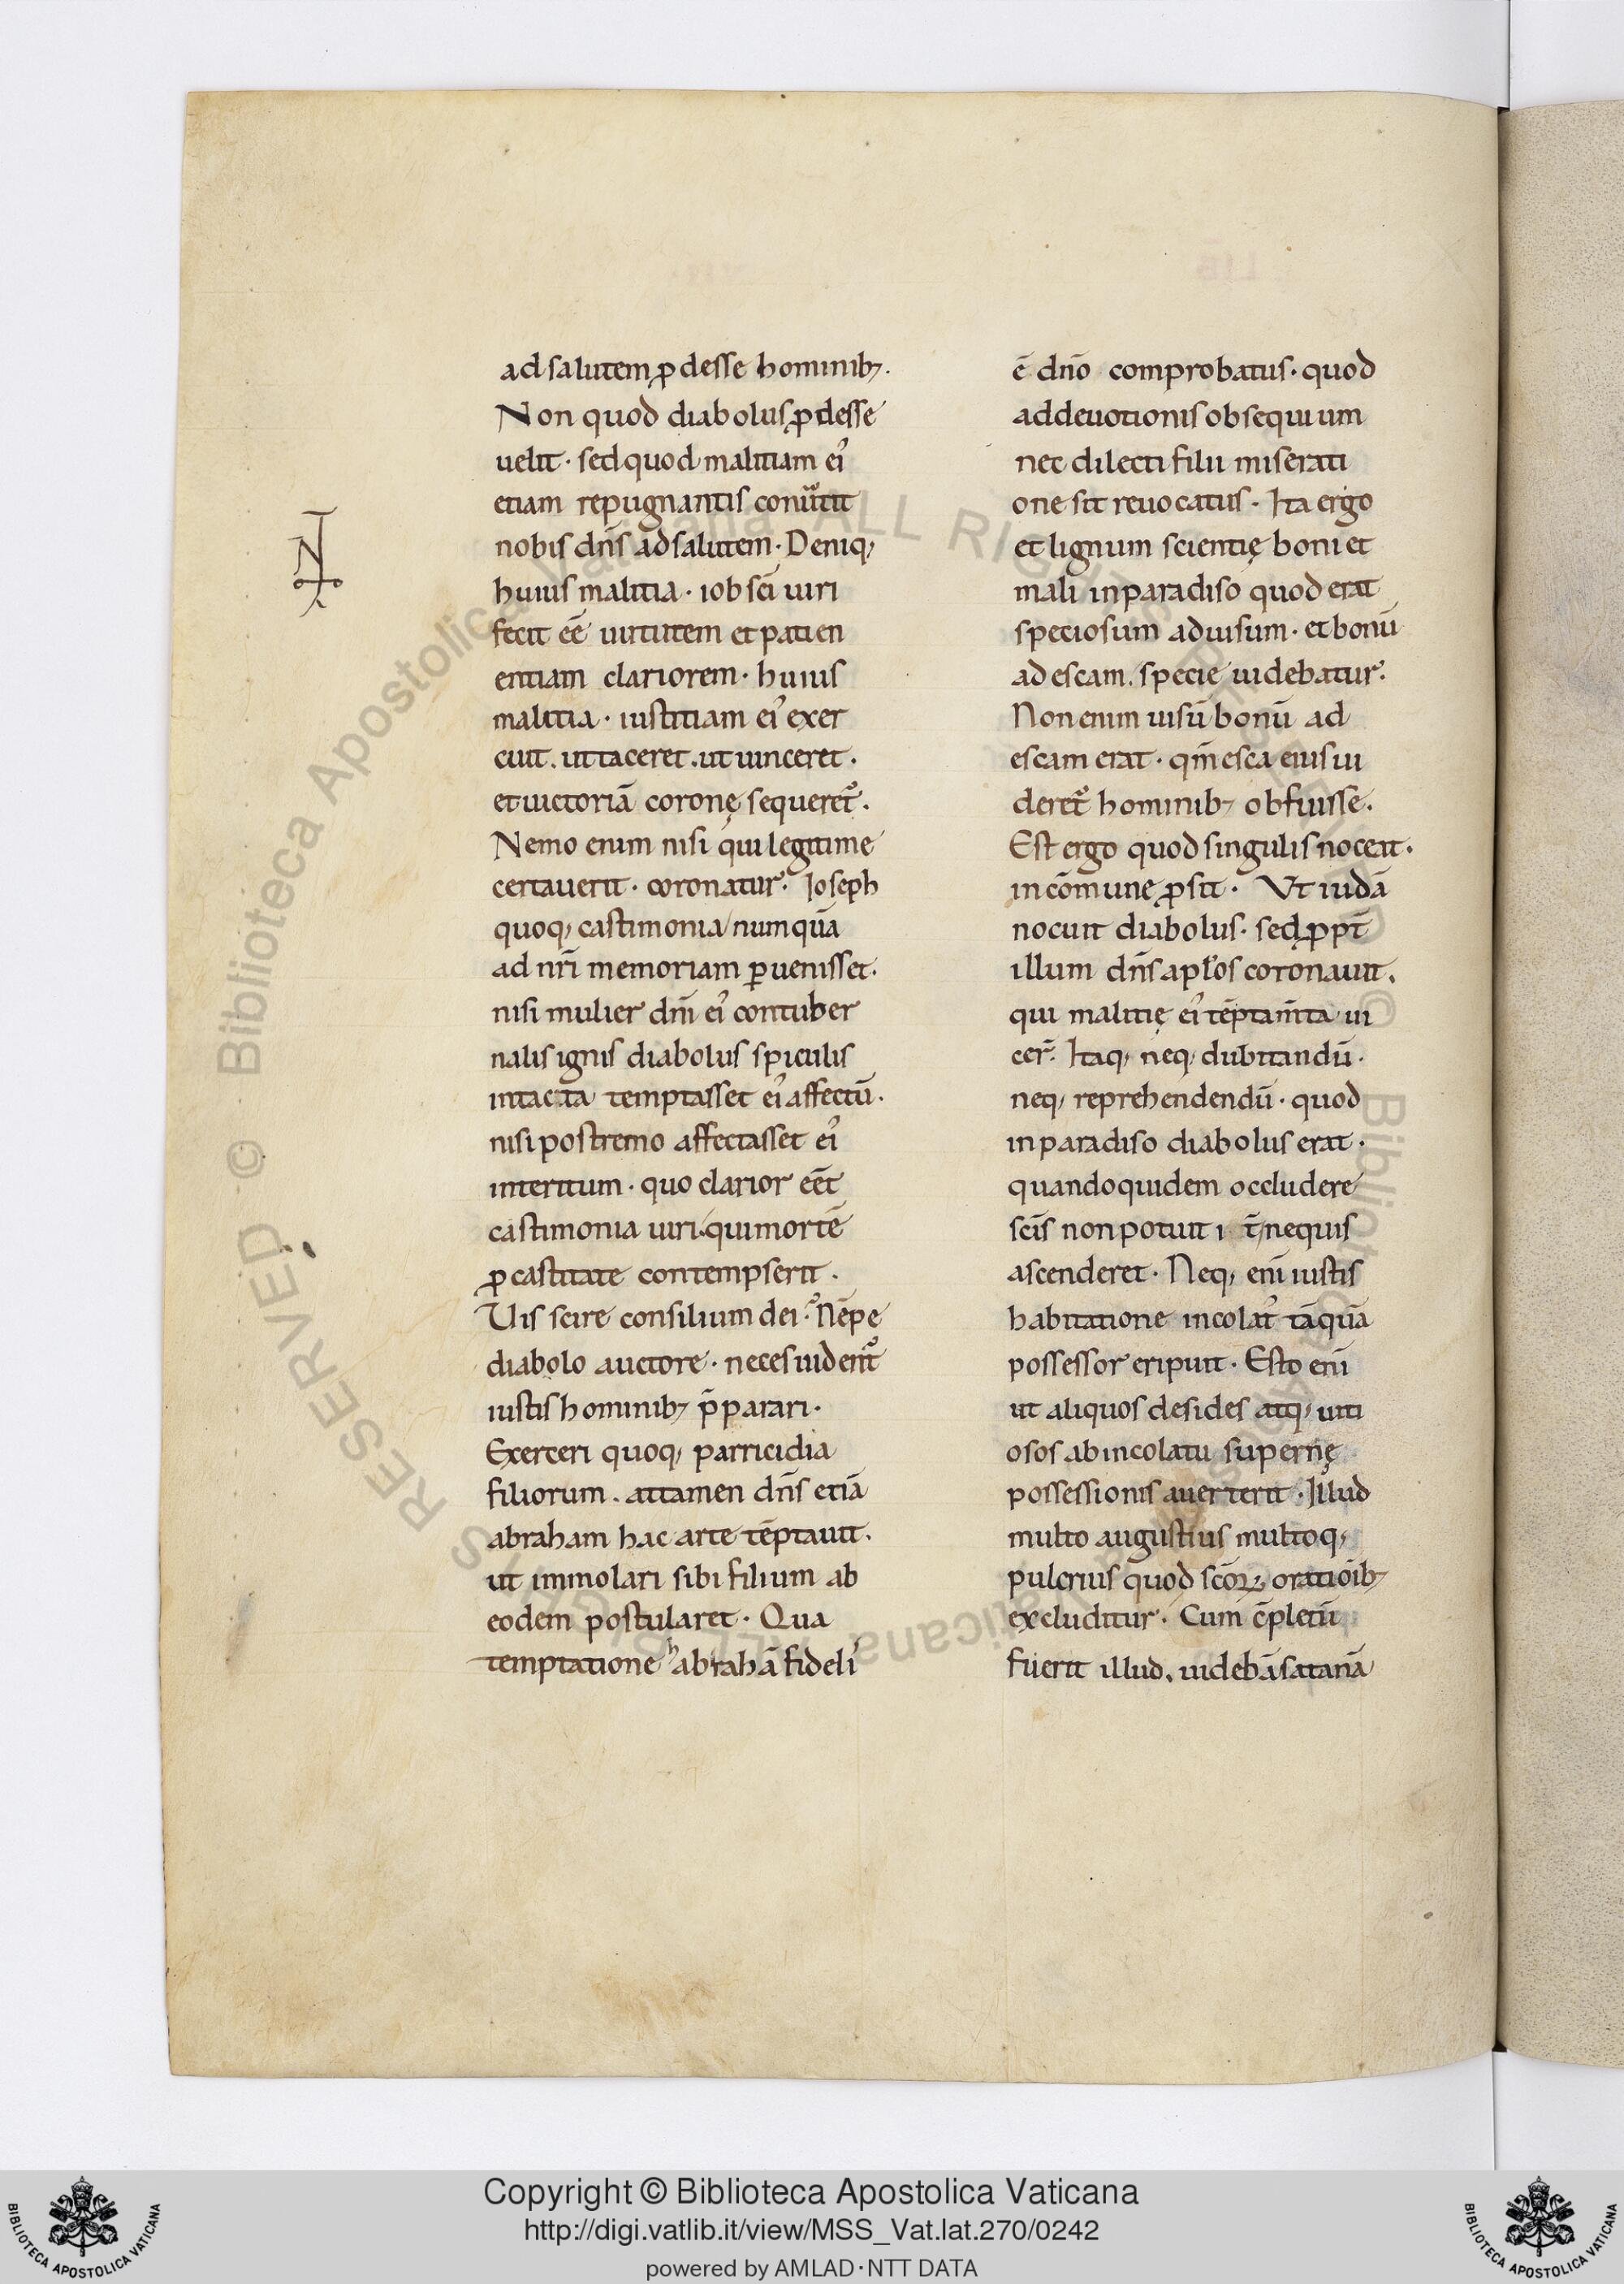 ad salutem ꝓdesse hominibꝫ.
Non quod diabolus ꝓdesse
uelit · sed quod malitiam eiꝰ
etiam repugnantis conũtit
nobis dñs ad salutem · Deniqꝫ
huius malitia · iob sc̄i uiri
fecit eē uirtutem et patien
entiam clariorem · huius
malitia · iustitiam eiꝰ exer
cuit . ut taceret . ut uinceret .
et uictoriā coronę sequeret᷑ .
Nemo enim nisi qui legitime
certauerit · coronatur · Ioseph
quoqꝫ castimonia numquā
ad nr̄i memoriam ꝑuenisset .
nisi mulier dn̄i eiꝰ contuber
nalis ignis diabolus spiculis
intacta temptasset eiꝰ affectū .
nisi postremo affectasset eiꝰ
interitum · quo clarior eēt
castimonia uiri · qui mortē
ꝓ castitate contempserit .
Uis scire consilium dei · Nēpe
diabolo auctore · neces uident᷑
iustis hominibꝫ p̄parari .
Exerceri quoqꝫ parricidia
filiorum . attamen dñs etiā
abraham hac arte tēptauit .
ut immolari sibi filium ab
eodem postularet · Qua
temptatione abrahā fideliꝰ
ē dn̄o comprobatus · quod
ad deuotionis obsequium
nec dilecti filii miserati
one sit reuocatus · Ita ergo
et lignum scientię boni et
mali in paradiso quod erat
speciosum ad uisum · et bonū
ad escam . specie uidebatur .
Non enim uisū bonū ad
escam erat · qm̄ esca eius ui
deret᷑ hominibꝫ obfuisse .
Est ergo quod singulis noceat .
in cōmune ꝓsit · Ut iudā
nocuit diabolus · sed ꝓpt̄
illum dñs aplos coronauit .
qui malitię eiꝰ tēptam̄ta ui
cer̄ . Itaqꝫ neqꝫ dubitandū .
neqꝫ reprehendendū · quod
in paradiso diabolus erat .
quandoquidem occludere
sc̄is non potuit i t̄ nequis
ascenderet · Neqꝫ eni̅ iustis
habitatione incolatꝰ tāquā
possessor eripuit · Esto eni̅
ut aliquos desides atqꝫ uiti
osos ab incolatu supernę
possessionis auerterit · Illud
multo augustius multoqꝫ
pulcrius quod sc̄oꝝ oratioībꝫ
excluditur · Cum c̄pletū
fuerit illud . uidebā satanā
Copyright © Biblioteca Apostolica Vaticana
http://digi.vatlib.it/view/MSS_Vat.lat.270/0242
powered by AMLAD·NTT DATA